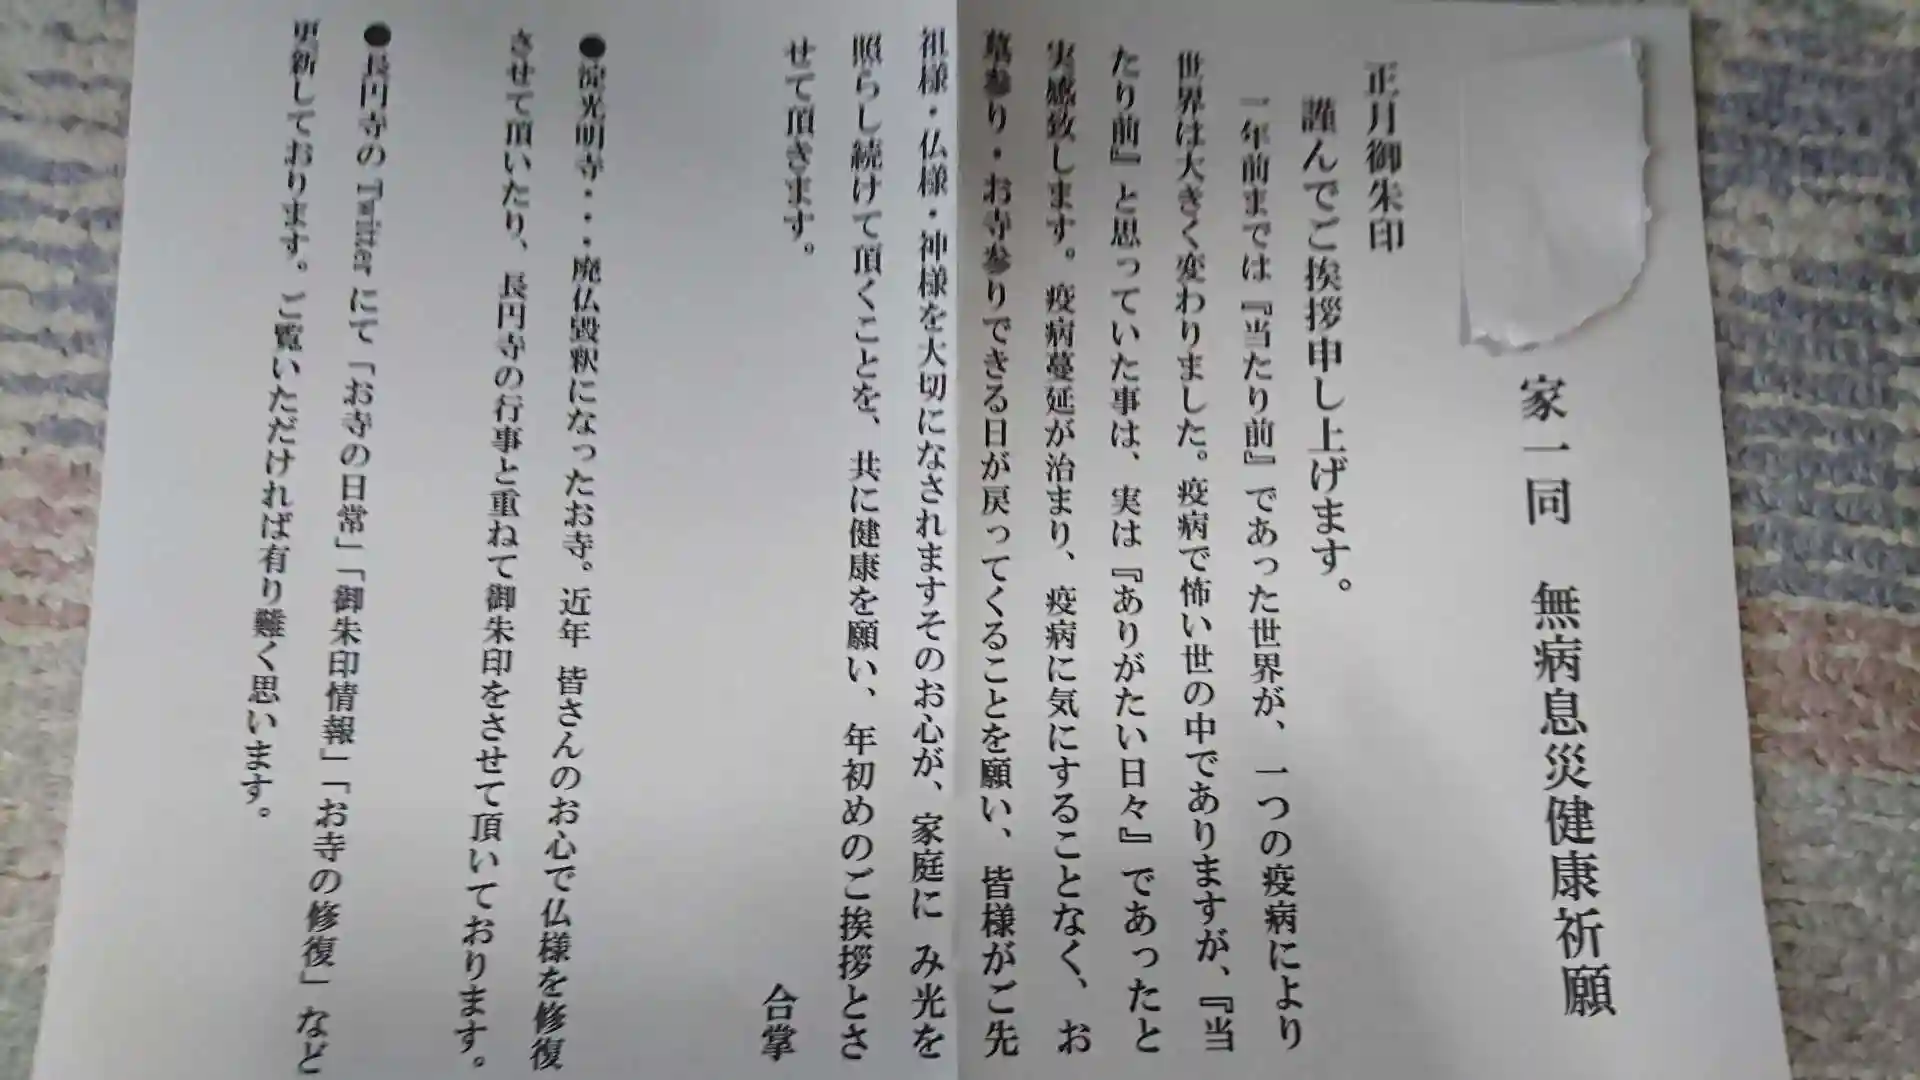 家一同　無病息災健康祈願
正月御朱印
謹んでご挨拶申し上げます。
一年前までは『当たり前』であった世界が、一つの疫病により
世界は大きく変わりました。疫病で怖い世の中でありますが、『当
たり前』と思っていた事は、実は『ありがたい日々』であったと
実感致します。疫病蔓延が治まり、疫病に気にすることなく、お
墓参り・お寺参りできる日が戻ってくることを願い、皆様がご先
祖様・仏様・神様を大切になされますそのお心が、家庭に み光を
照らし続けて頂くことを、共に健康を願い、年初めのご挨拶とさ
せて頂きます。
合掌
●淀光明寺・・・廃仏毀釈になったお寺。近年 皆さんのお心で仏様を修復
させて頂いたり、長円寺の行事と重ねて御朱印をさせて頂いております。
●長円寺の『Twitter にて「お寺の日常」「御朱印情報」「お寺の修復」など
更新しております。ご覧いただければ有り難く思います。